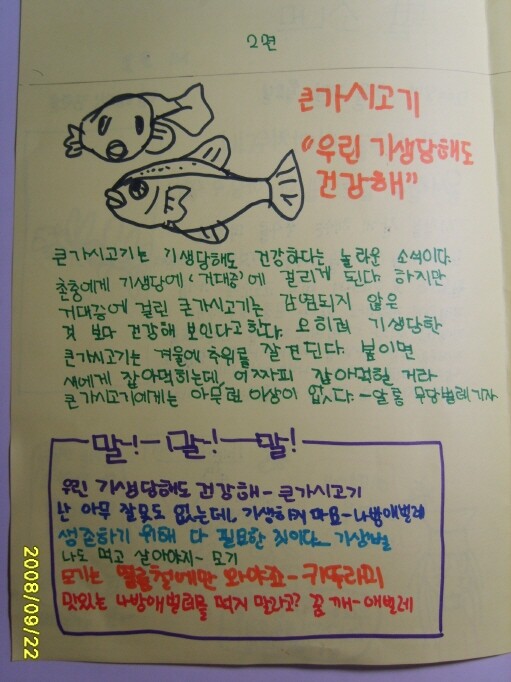 2면
큰가시고기
"우린 기생당해도
건강해"
큰가시고기는 기생당해도 건강하다는 놀라운 소식이다.
촌충에게 기생당해 '거대증'에 걸리게 된다. 하지만
거대증에 걸린 큰가시고기는 감염되지 않은
것 보다 건강해 보인다고 한다. 오히려 기생당한
큰가시고기는 겨울에 추위를 잘 견딘다. 봄이면
새에게 잡아먹히는데, 어차피 잡아먹힐 거라
큰가시고기에게는 아무런 이상이 없다. -알통 무당벌레기자
말! 말! 말!
우린 기생당해도 건강해- 큰가시고기
난 아무 잘못도 없는데, 기생하지 마요-나방애벌레
생존하기 위해 다 필요한 짓이다_ 기생벌
나도 먹고 살아야지- 모기
모기는 열음철에만 와야죠- 귀뚜라미
맛있는 나방애벌레를 먹지 말라고? 꿈 깨- 애벌레
2008/09/22